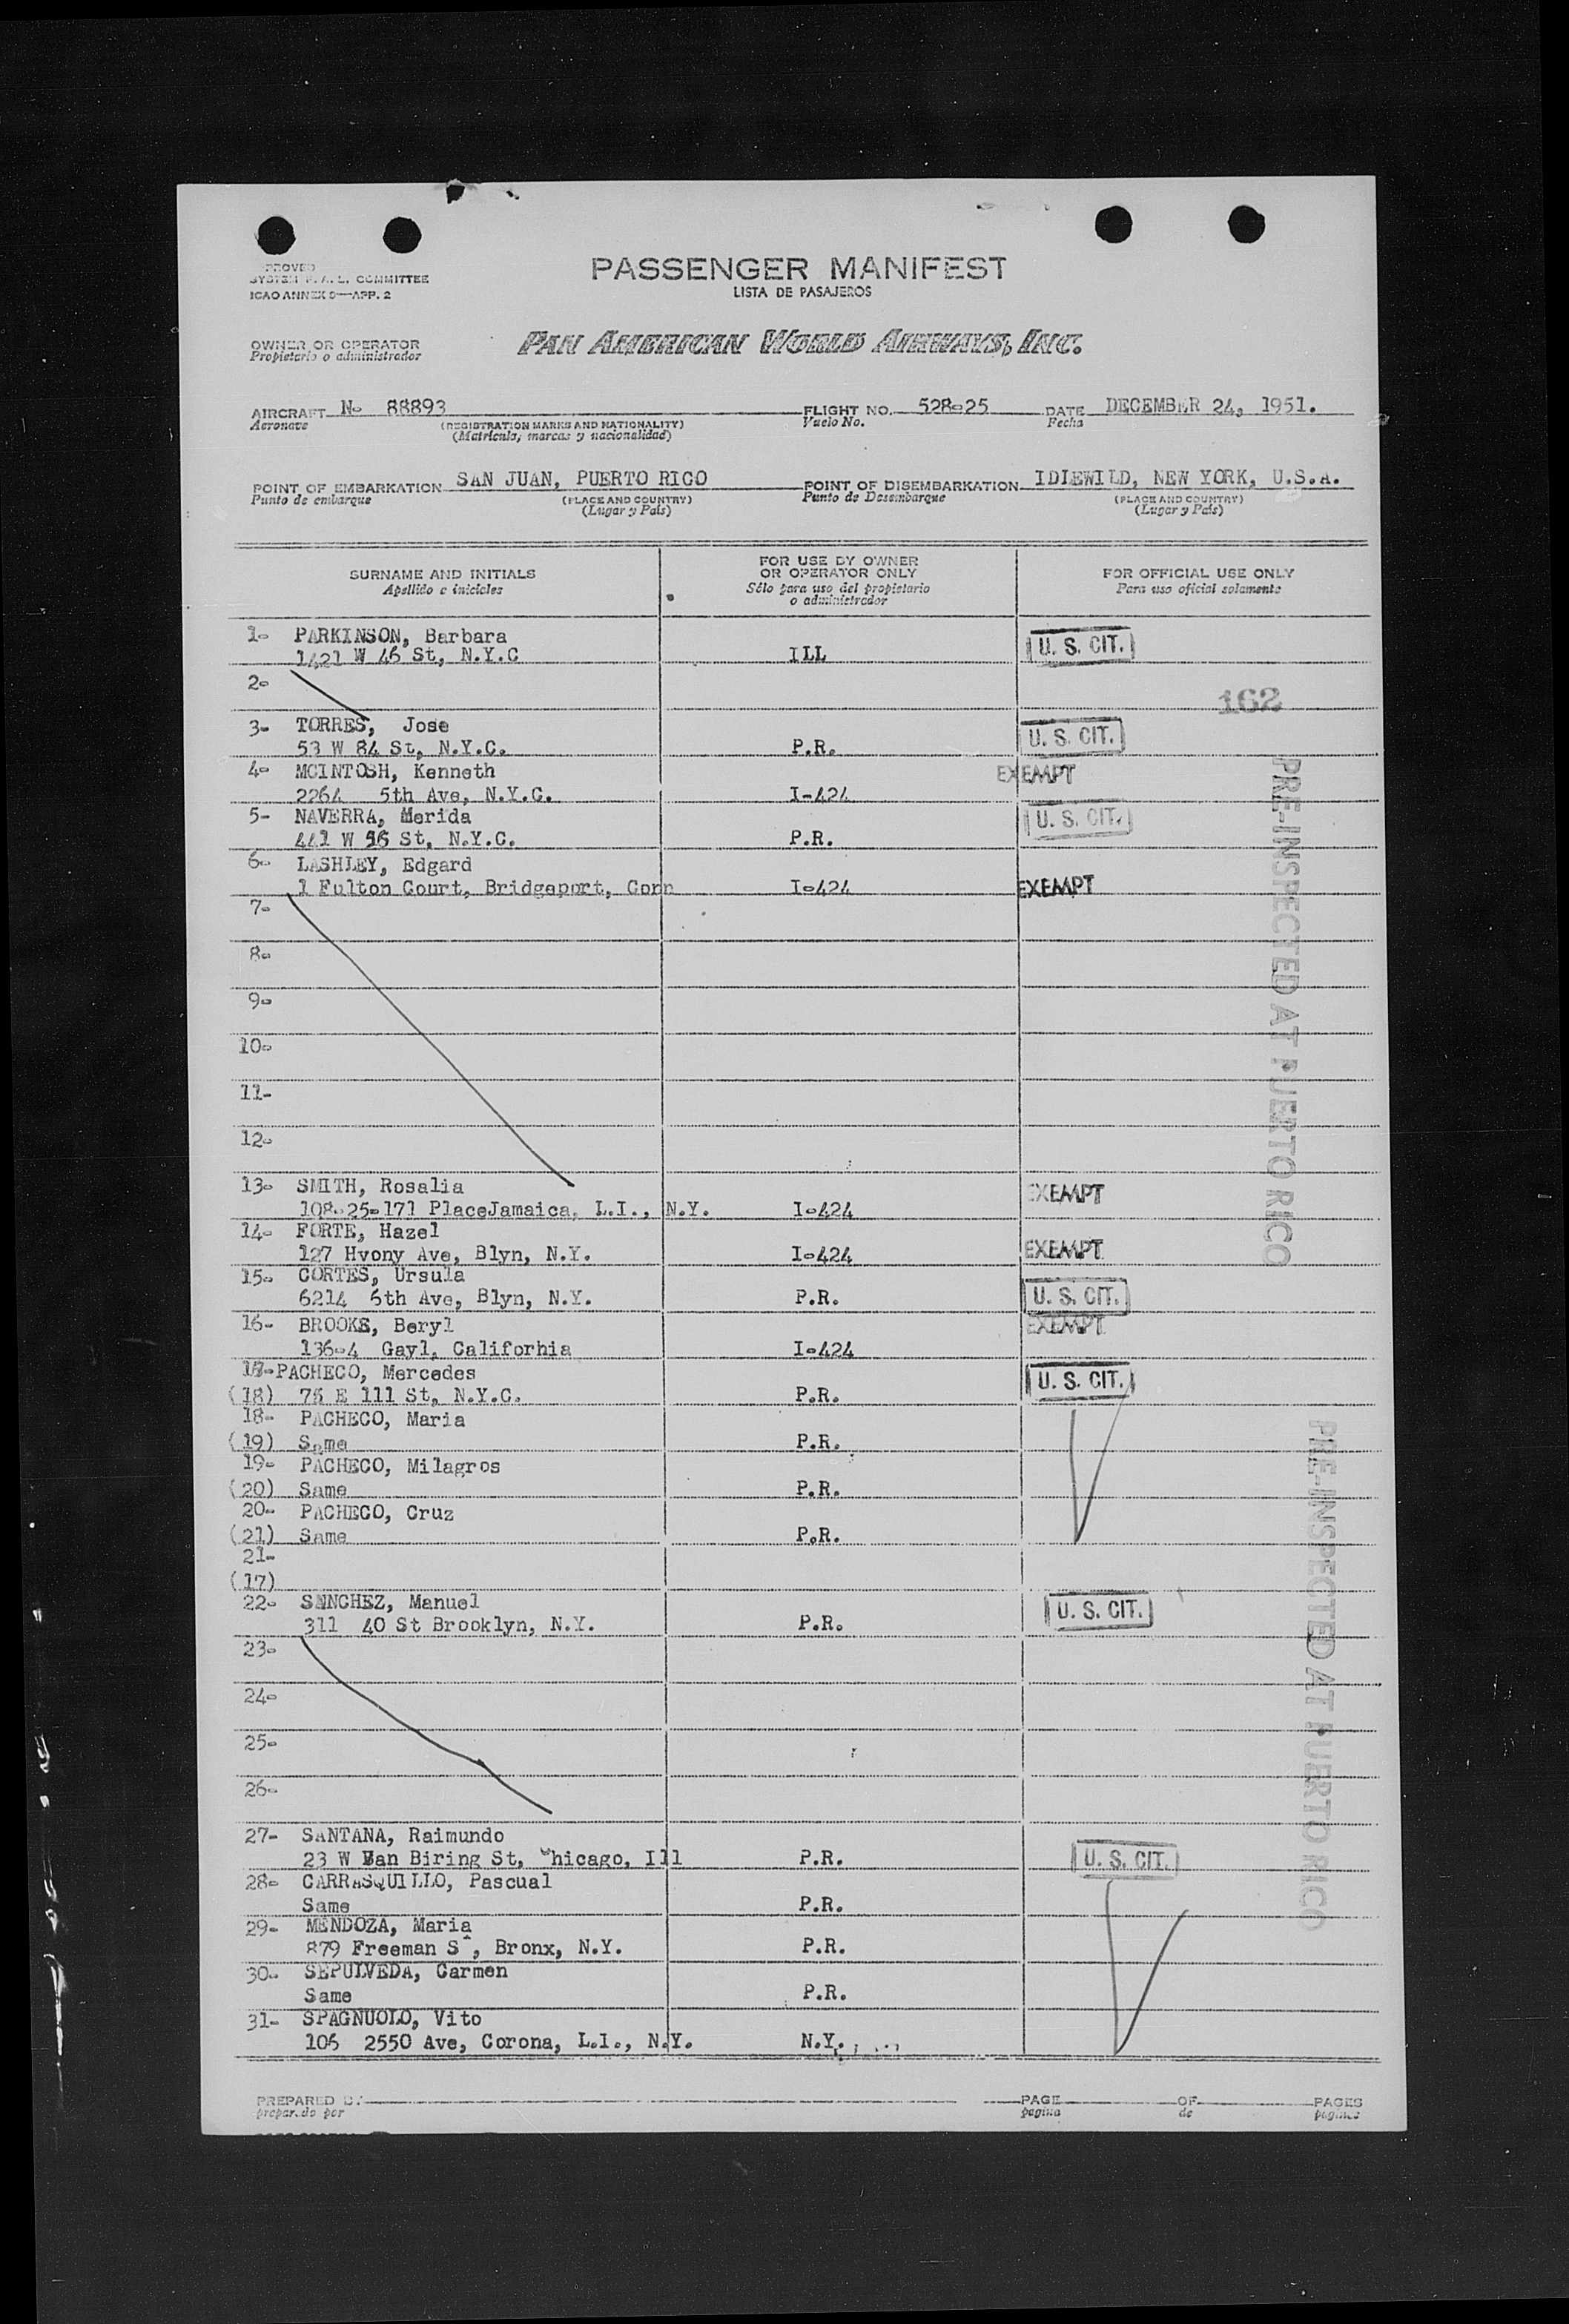 PASSENGER MANIFEST
LISTA DE PASAJEROS
SYSTEM F. A. L. COMMITTEE
ICAO ANNEX 9—APP. 2
OWNER OR OPERATOR
Propietario o administrador
PAN AMERICAN WORLD AIRWAYS, INC.
AIRCRAFT No 88893 FLIGHT NO. 528-25 DATE DECEMBER 24, 1951.
Aeronave (REGISTRATION MARKS AND NATIONALITY) Vuelo No. Fecha
(Matricula, marcas y nacionalidad)
POINT OF EMBARKATION SAN JUAN, PUERTO RICO POINT OF DISEMBARKATION IDLEWILD, NEW YORK, U.S.A.
Punto de embarque (PLACE AND COUNTRY) Punto de Desembarque (PLACE AND COUNTRY)
(Lugar y País) (Lugar y País)
SURNAME AND INITIALS FOR USE BY OWNER OR OPERATOR ONLY FOR OFFICIAL USE ONLY
Apellido e iniciales Sólo para uso del propietario o administrador Para uso oficial solamente
1- PARKINSON, Barbara
1421 W 46 St, N.Y.C ILL U. S. CIT.
2-
162
3- TORRES, Jose
53 W 84 St, N.Y.C. P.R. U. S. CIT.
4- MCINTOSH, Kenneth EXEMPT
2264 5th Ave, N.Y.C. I-424
5- NAVERRA, Merida
441 W 56 St, N.Y.C. P.R. U. S. CIT.
6- LASHLEY, Edgard
1 Fulton Court, Bridgeport, Conn I-424 EXEMPT
7-
8-
9-
10-
11-
12-
13- SMITH, Rosalia
108-25-171 PlaceJamaica, L.I., N.Y. I-424 EXEMPT
14- FORTE, Hazel
127 Hvony Ave, Blyn, N.Y. I-424 EXEMPT
15- CORTES, Ursula
6214 5th Ave, Blyn, N.Y. P.R. U. S. CIT.
16- BROOKS, Beryl EXEMPT
136-4 Gayl, Califorhia I-424
17-PACHECO, Mercedes
(18) 75 E 111 St, N.Y.C. P.R. U. S. CIT.
18- PACHECO, Maria
(19) Same P.R.
19- PACHECO, Milagros
(20) Same P.R.
20- PACHECO, Cruz
(21) Same P.R.
21-
(17)
22- SANCHEZ, Manuel
311 40 St Brooklyn, N.Y. P.R. U. S. CIT.
23-
24-
25-
26-
27- SANTANA, Raimundo
23 W Van Biring St, Chicago, Ill P.R. U. S. CIT.
28- CARRASQUILLO, Pascual
Same P.R.
29- MENDOZA, Maria
879 Freeman St, Bronx, N.Y. P.R.
30- SEPULVEDA, Carmen
Same P.R.
31- SPAGNUOLO, Vito
106 2550 Ave, Corona, L.I., N.Y. N.Y.
PRE-INSPECTED AT PUERTO RICO
PRE-INSPECTED AT PUERTO RICO
PREPARED BY PAGE OF PAGES
preparado por pagina de paginas